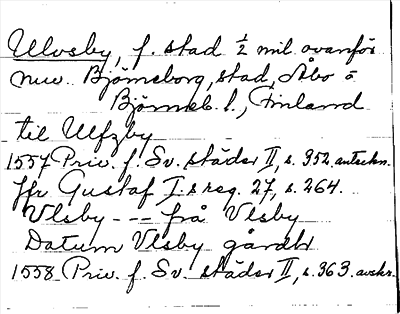 Ulvsby, f. stad ½ mil ovanför
nuv. Björneborg, stad, Åbo o
Björneb. l., Finland
til Ulfzby
1557 Priv. f. Sv. städer II, s. 352. anteckn.
Jfr Gustaf I:s reg. 27, s. 264.
Vlsby --- från Vlsby
Datum Vlsby gårdh
1558 Priv. f. Sv. städer II, s. 363. avskr.